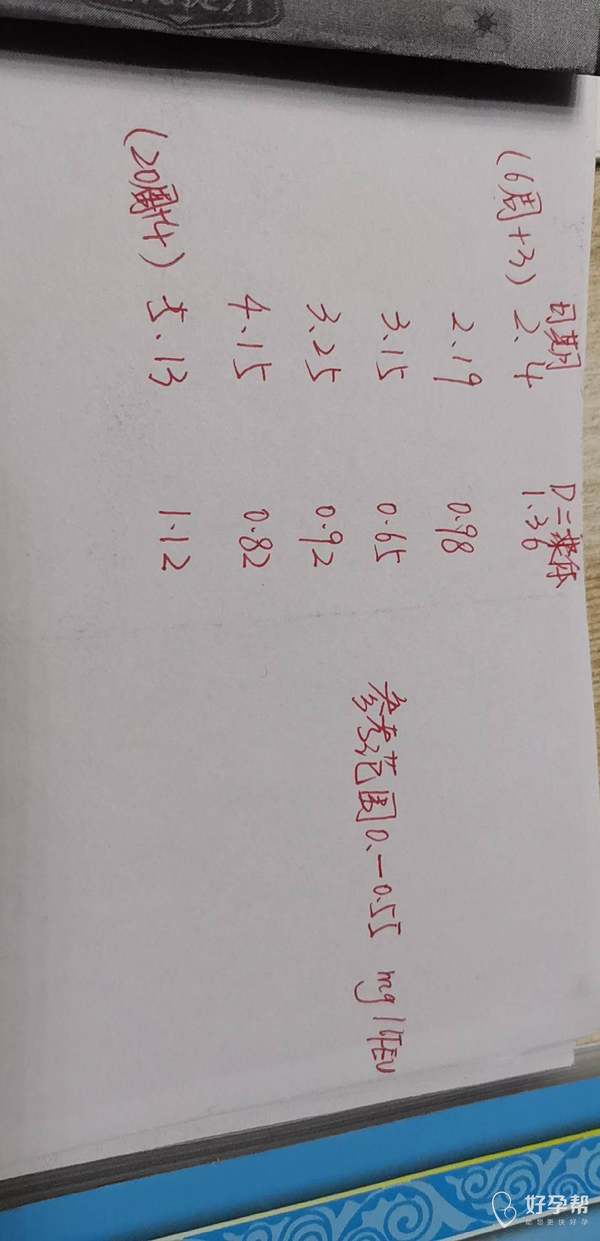 日期 D二聚体
(6周+3) 2.4 1.36
2.19 0.98
3.15 0.65
3.25 0.92
4.15 0.82
(20周+4) 5.13 1.12
参考范围0.-0.55 mg/LFEU
好孕帮
能帮更快好孕